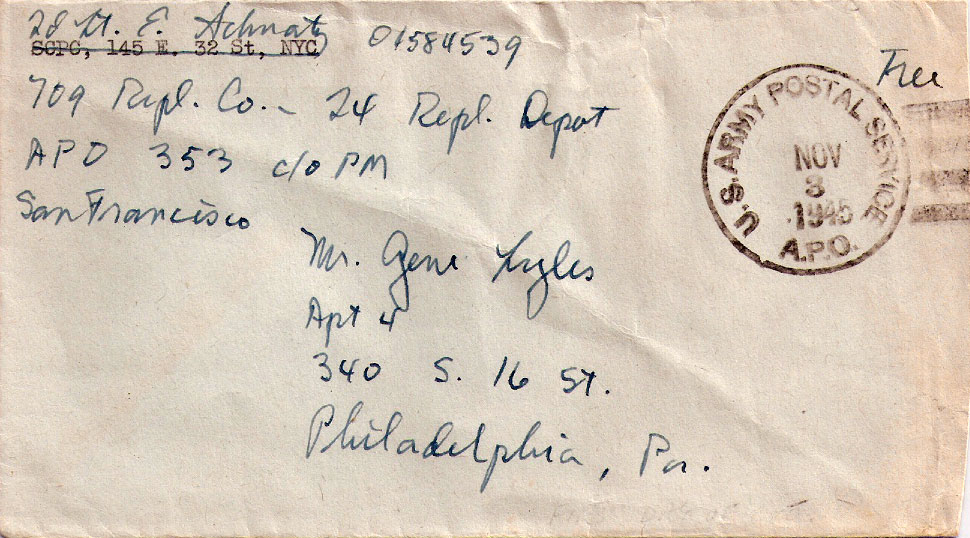 2d Lt. E. Achnatz 01584539
SCPC, 145 E. 32 St, NYC
709 Repl. Co. - 24 Repl. Depot
APO 353 c/o PM
San Francisco
Free
U.S. ARMY POSTAL SERVICE
NOV
3
1945
A.P.O.
Mr. Gene Lyles
Apt 4
340 S. 16 St.
Philadelphia, Pa.